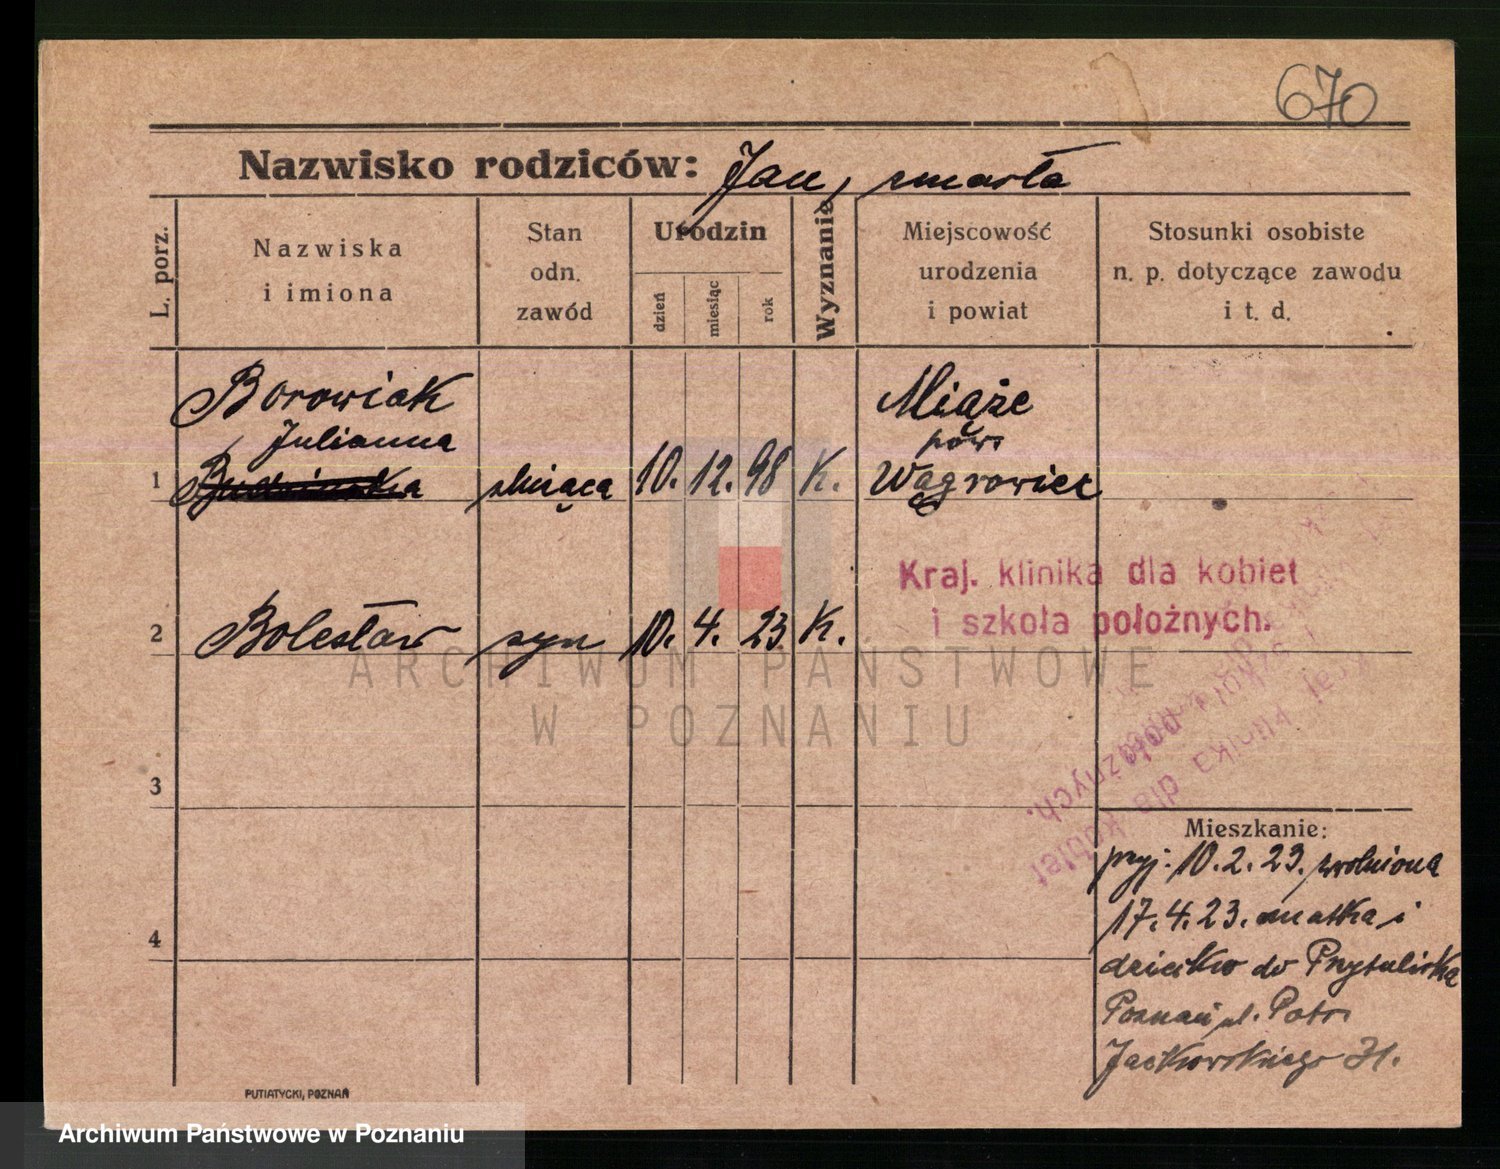 670
Nazwisko rodziców: Jan, zmarła
L. porz.
Nazwiska
i imiona
Stan
odn.
zawód
Urodzin
dzień
miesiąc
rok
Wyznanie
Miejscowość
urodzenia
i powiat
Stosunki osobiste
n. p. dotyczące zawodu
i t. d.
Borowiak
Julianna
1 służąca 10. 12. 98 K.
Miąże
pow.
Wągrowiec
Kraj. klinika dla kobiet
i szkoła położnych.
2 Bolesław syn 10. 4. 23 K.
ARCHIWUM PAŃSTWOWE
W POZNANIU
Kraj. klinika dla kobiet
i szkoła położnych.
3
4
Mieszkanie:
przyj. 10. 2. 23. zwolniona
17. 4. 23. matka i
dziecko do Przytuliska
Poznań ul. Patr.
Jackowskiego
PUTIATYCKI, POZNAŃ
Archiwum Państwowe w Poznaniu